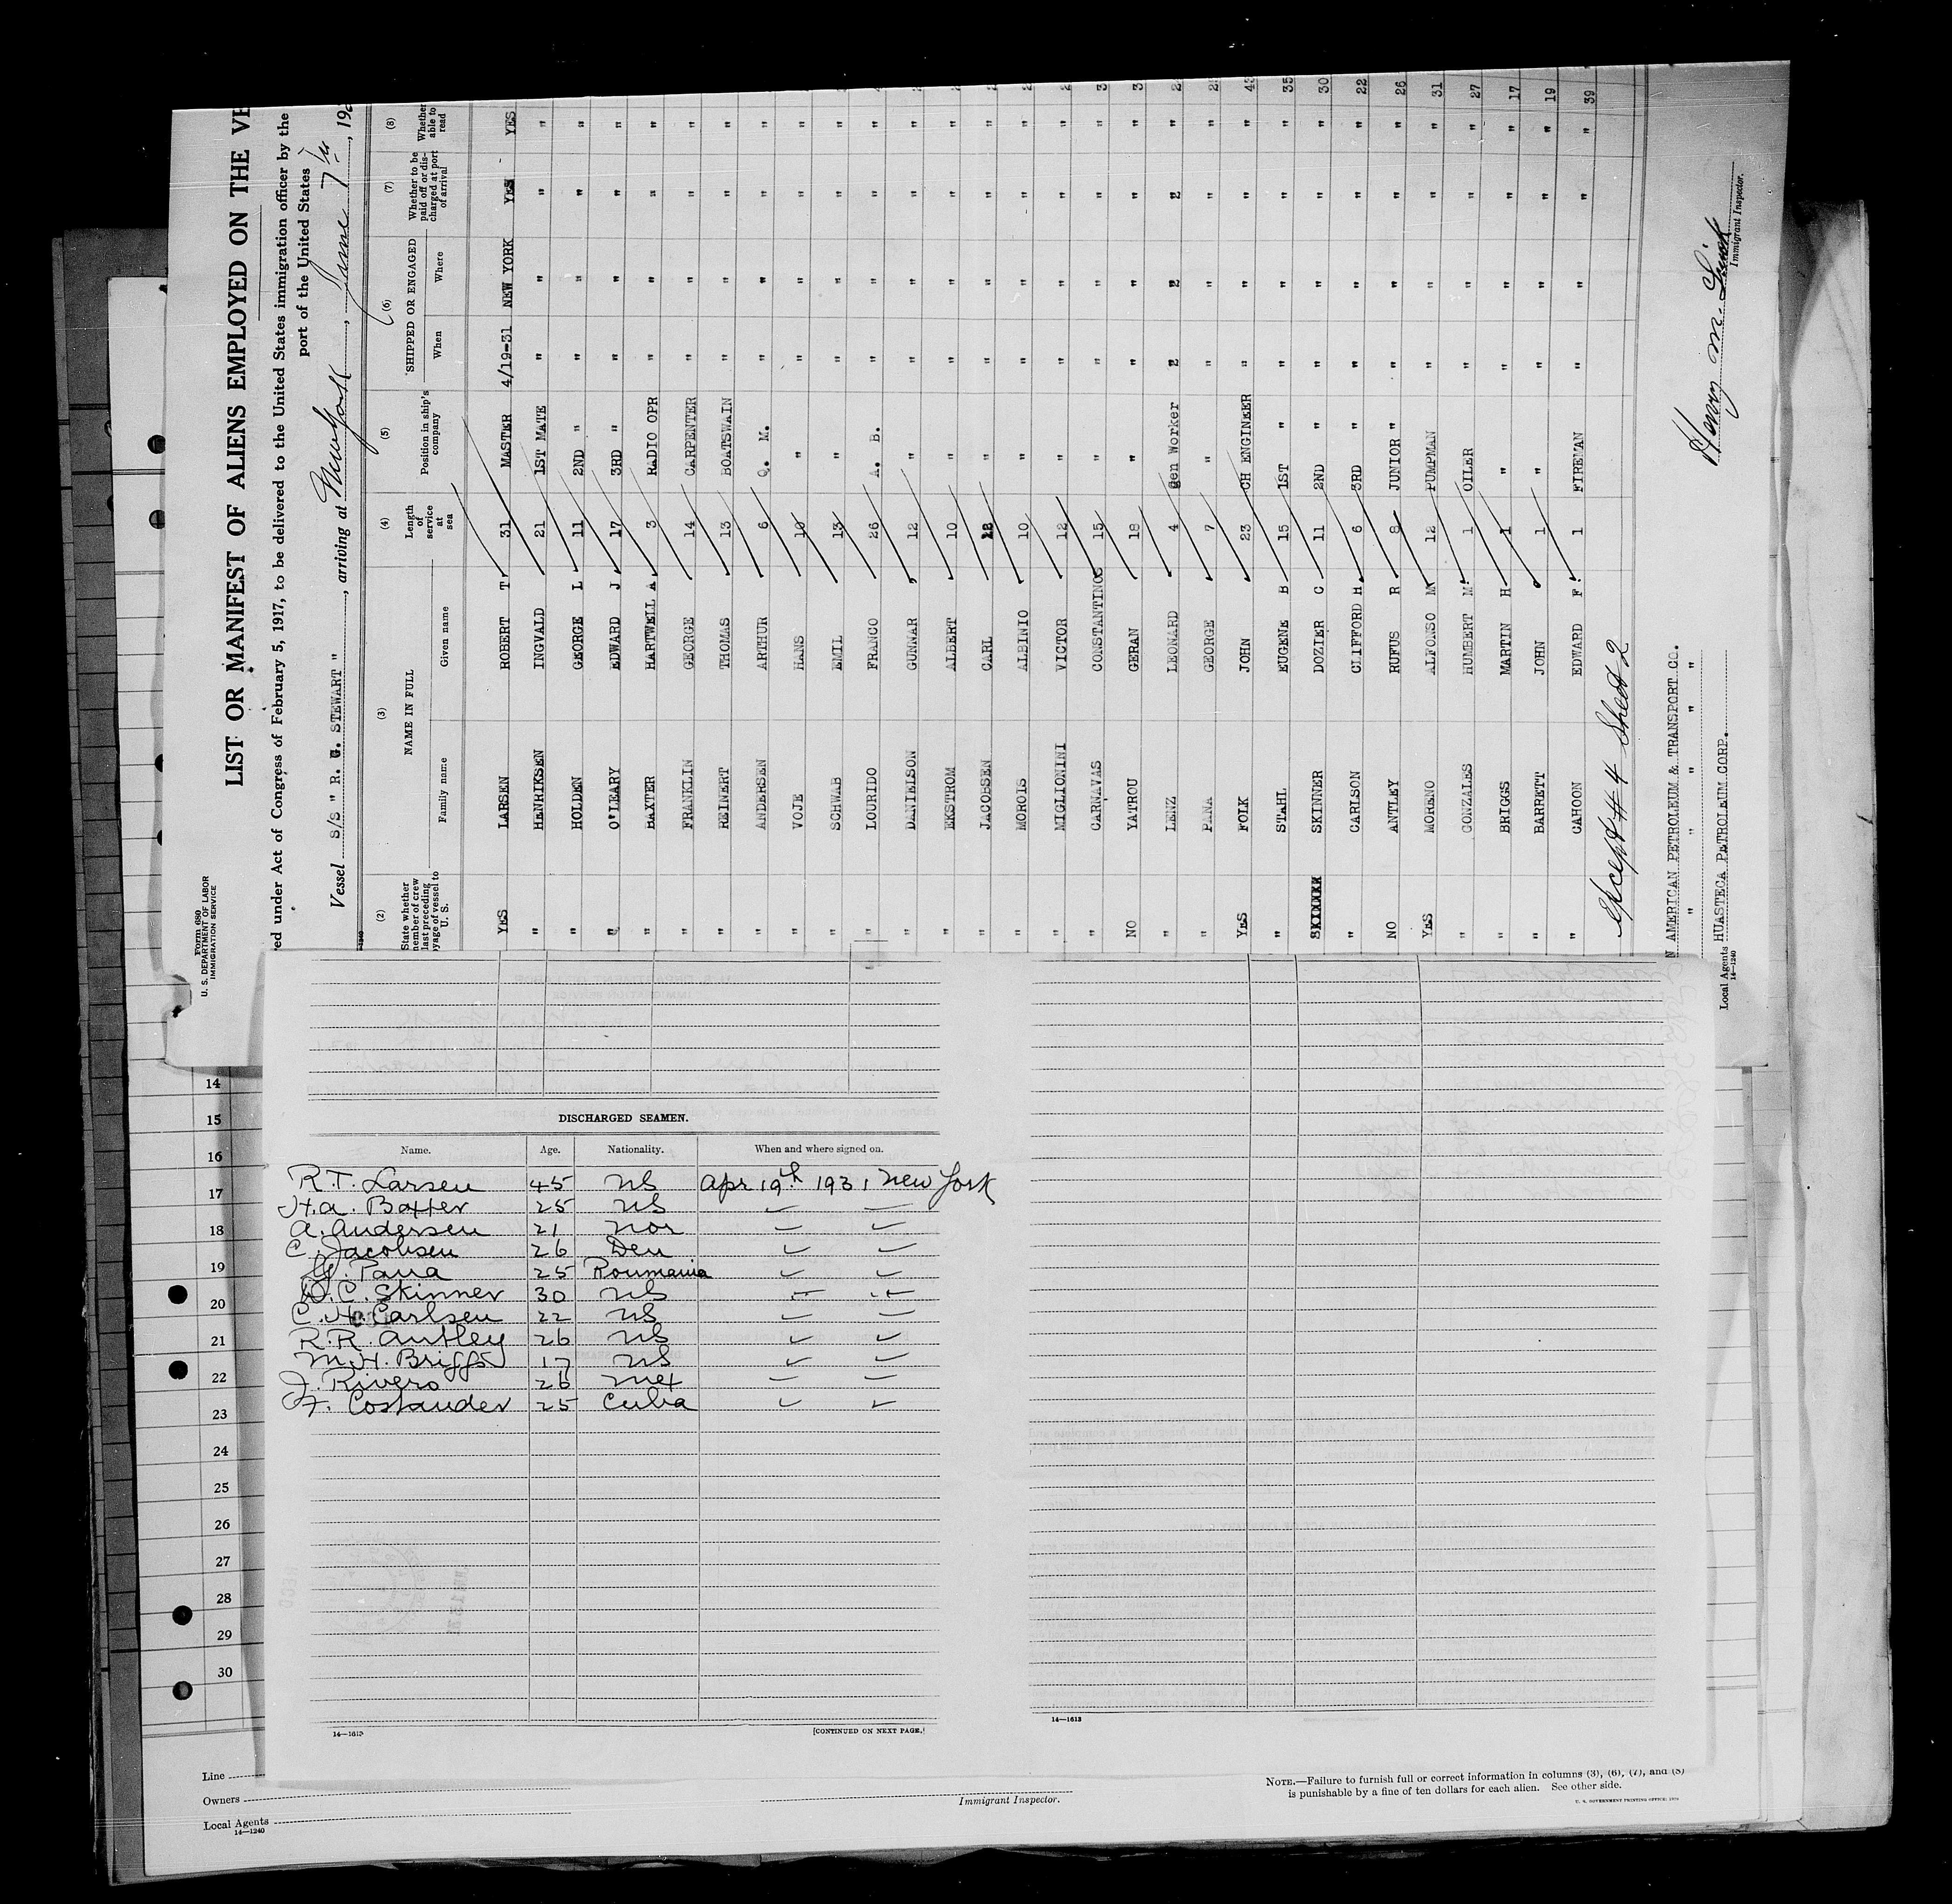 Form 680
U. S. DEPARTMENT OF LABOR
IMMIGRATION SERVICE
LIST OR MANIFEST OF ALIENS EMPLOYED ON THE VE
ed under Act of Congress of February 5, 1917, to be delivered to the United States immigration officer by the
port of the United States
Vessel S/S " R. G. STEWART ", arriving at New York, June 7th, 19
(2) (3) (4) (5) (6) (7) (8)
State whether member of crew last preceding voyage of vessel to U. S.
NAME IN FULL
Family name Given name
Length of service at sea
Position in ship's company
SHIPPED OR ENGAGED
When Where
Whether to be paid off or discharged at port of arrival
Whether able to read
YES LARSEN ROBERT T 31 MASTER 4/19-31 NEW YORK YES YES
" HENRIKSEN INGVALD 21 1ST MATE " " " "
" HOLDEN GEORGE L 11 2ND " " " " "
" O'LEARY EDWARD J 17 3RD " " " " "
" BAXTER HARTWELL A 3 RADIO OPR " " " "
" FRANKLIN GEORGE 14 CARPENTER " " " "
" REINERT THOMAS 13 BOATSWAIN " " " "
" ANDERSEN ARTHUR 6 Q. M. " " " "
" VOJE HANS 10 " " " " "
" SCHWAB EMIL 13 " " " " "
" LOURIDO FRANCO 26 A. B. " " " "
" DANIELSON GUNNAR 12 " " " " "
" EKSTROM ALBERT 10 " " " " "
" JACOBSEN CARL " " " " "
" MOROIS ALBINIO 10 " " " " "
" MIGLIONINI VICTOR 12 " " " " "
" CARNAVAS CONSTANTINOS 15 " " " " "
NO YATROU GERAN 18 " " " " "
" LENZ LEONARD 4 gen Worker " " " "
" PANA GEORGE 7 " " " " "
YES FOLK JOHN 23 CH ENGINEER " " " " 43
" STAHL EUGENE B 15 1ST " " " " " 35
SKINNER DOZIER C 11 2ND " " " " " 30
" CARLSON CLIFFORD H. 6 3RD " " " " " 22
NO ANTLEY RUFUS R 8 JUNIOR " " " " " 26
YES MORENO ALFONSO M 12 PUMPMAN " " " " 31
" GONZALES HUMBERT M. 1 OILER " " " " 27
" BRIGGS MARTIN H 1 " " " " " 17
" BARRETT JOHN 1 " " " " " 19
" CAHOON EDWARD F. 1 FIREMAN " " " " 39
except # 4 Sheet 2
N AMERICAN PETROLEUM & TRANSPORT CO.
" " " " "
Local Agents HUASTECA PETROLEUM CORP.
14—1240
Henry M.
Immigrant Inspector.
DISCHARGED SEAMEN.
Name. Age. Nationality. When and where signed on.
R.T. Larsen 45 US Apr 19th 1931 New York
H.A. Baxter 25 US
A. Andersen 21 Nor
C. Jacobsen 26 Den
G. Pana 25 Roumania
D.C. Skinner 30 US
C.H. Carlsen 22 US
R.R. Antley 26 US
M.H. Briggs 17 US
J. Rivero 26 Mex
F. Costander 25 Cuba
14—1613
[CONTINUED ON NEXT PAGE.]
14—1613
14
15
16
17
18
19
20
21
22
23
24
25
26
27
28
29
30
Line
Owners
Local Agents
14—1240
Immigrant Inspector.
NOTE.—Failure to furnish full or correct information in columns (3), (6), (7), and (8)
is punishable by a fine of ten dollars for each alien. See other side.